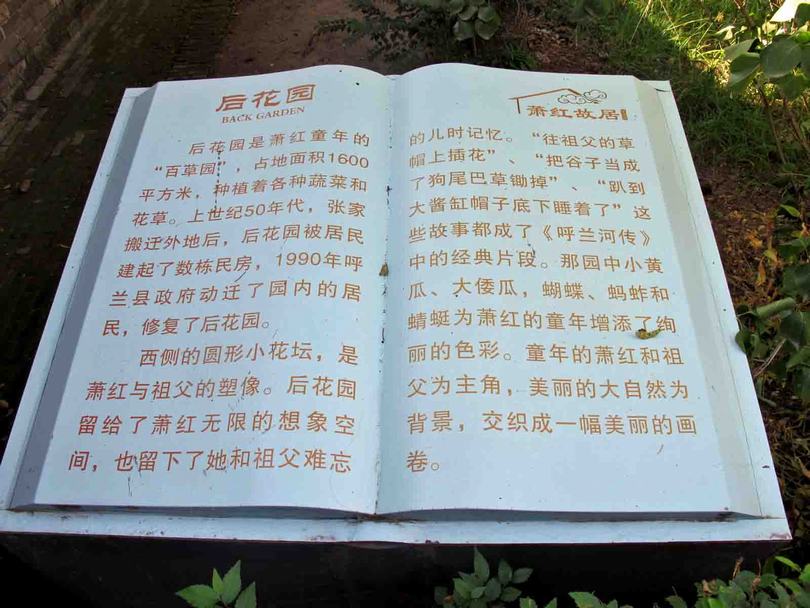 后花园
BACK GARDEN
后花园是萧红童年的
“百草园”，占地面积1600
平方米，种植着各种蔬菜和
花草。上世纪50年代，张家
搬迁外地后，后花园被居民
建起了数栋民房，1990年呼
兰县政府动迁了园内的居
民，修复了后花园。
西侧的圆形小花坛，是
萧红与祖父的塑像。后花园
留给了萧红无限的想象空
间，也留下了她和祖父难忘
萧红故居
的儿时记忆。“往祖父的草
帽上插花”、“把谷子当成
了狗尾巴草锄掉”、“趴到
大酱缸帽子底下睡着了”这
些故事都成了《呼兰河传》
中的经典片段。那园中小黄
瓜、大倭瓜，蝴蝶、蚂蚱和
蜻蜓为萧红的童年增添了绚
丽的色彩。童年的萧红和祖
父为主角，美丽的大自然为
背景，交织成一幅美丽的画
卷。